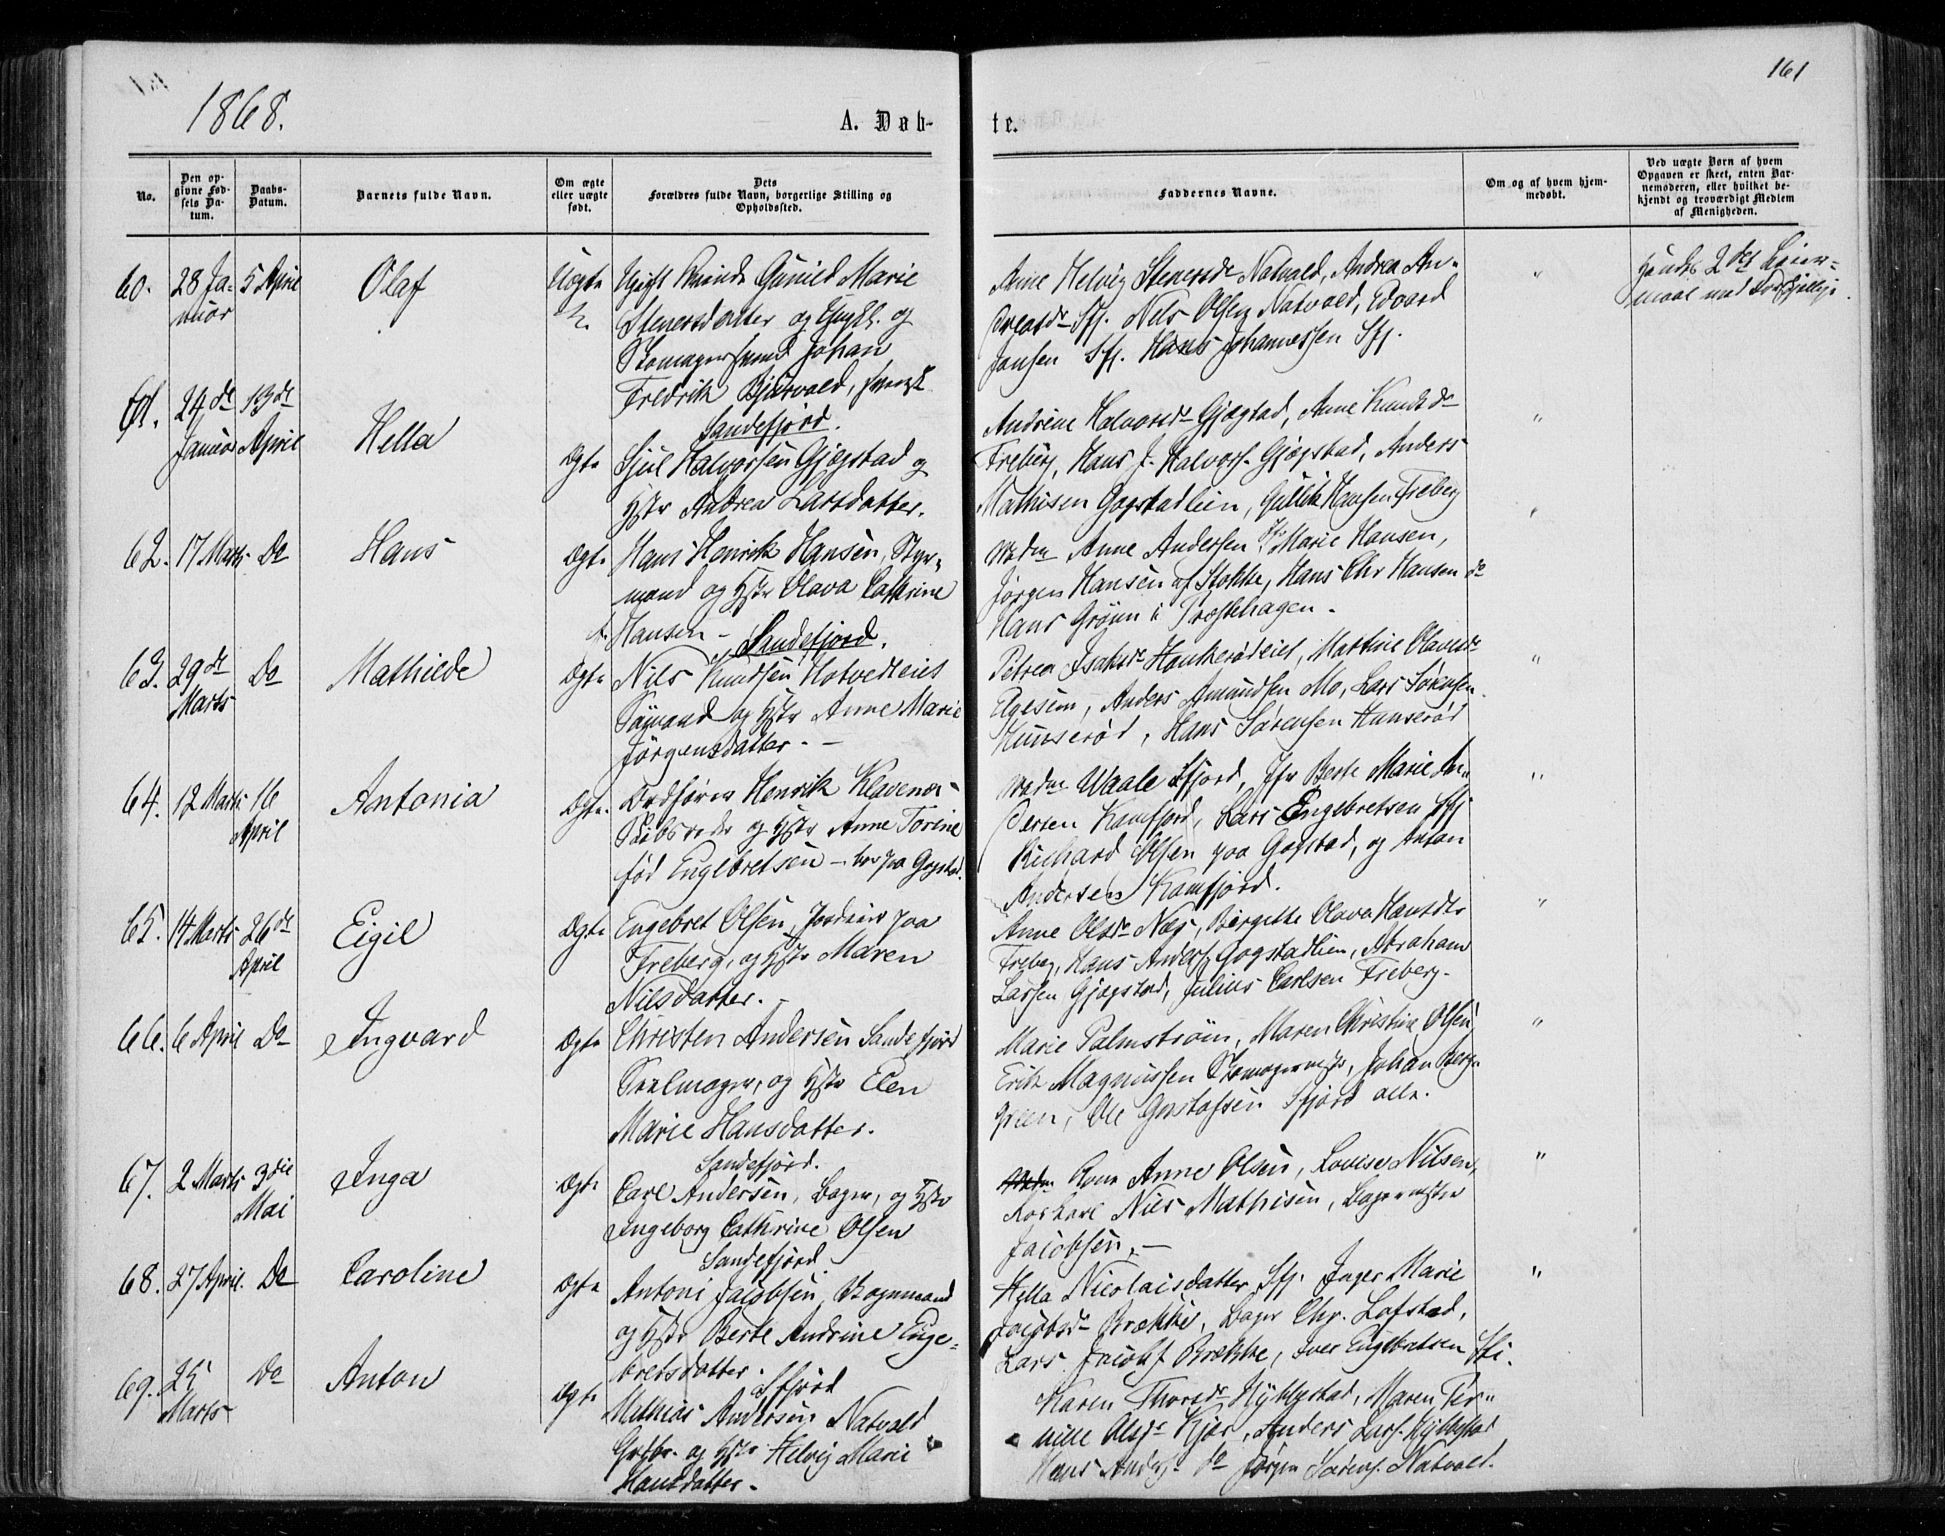 161
1868.
A. Døb-
te.
No.
Den op-
givne Fød-
sels Da-
tum.
Daabs-
Datum.
Barnets fulde Navn.
Om ægte
eller uægte
født.
Dets
Forældres fulde Navn, borgerlige Stilling og
Opholdssted.
Faddernes Navne.
Om og af hvem hjem-
medøbt.
Ved uægte Børn af hvem
Opgaven er skeet, enten Bar-
nemoderen, eller hvilket be-
kjendt og troværdigt Medlem
af Menigheden.
60. 28 Ja-
nuar
5 April
Olaf
Uægte
Ugift Kvinde Gunild Marie
Stenersdatter og Ungkl. og
Skomagersvend Johan
Fredrik Bjurvald, svensk
Sandefjord.
Anne Helvig Stenersdr Natvald, Andrea An-
dreasdr Sfj. Nels Olsen Natvald, Edvard
Jansen Sfj. Hans Johannessen Sfj.
"
hendes 2det Leier-
maal med
61. 24de
Januar
13de
April
Hella
Ægte
Sjul Halvorsen Gjøgstad og
Hstr Andrea Larsdatter.
Andrine Halvorsdr Gjøgstad, Anne Knudsdr
Freberg, Hans J. Halvors. Gjøgstad, Anders
Mathisen Gogstadlien, Gullik Hansen Freberg
"
62. 17 Marts
Do
Hans
Ægte
Hans Henrik Hansen, Styr-
mand og Hstr Olava Cathrine
Hansen - Sandefjord.
Madm Anne Andersen, Marie Hansen,
Jørgen Hansen af Stokke, Hans Chr Hansen do
Hans Grønn i Præstehagen.
"
63. 29de
Marts
Do
Mathilde
Ægte
Nils Knudsen Hotvedteiet
Sømand og Hstr Anne Marie
Jörgensdatter. -
Petrea Isaksdr Haukerødeiet, Mathie Olavesdr
Elgesem, Anders Amundsen Mo, Lars Sörensen
Hunserød, Hans Sørensen Hunserød
"
64. 12 Marts
16
April
Antonia
Ægte.
Ordfører Henrik Klavenæs -
Skibsreder og Hstr Anne Torine
fød Engebretsen - bor paa Gogstad.
Madm Waale Sfjord, Jfr Berte Marie An-
dersen Kamfjord, Lars Engebretsen Sfj
Richard Olsen paa Gogstad, og Anton
Andersen Kamfjord.
"
65. 14 Marts
26de
April
Eigil
Ægte
Engebret Olsen, Jordeier paa
Freberg, og Hstr Maren
Nilsdatter.
Anne Olsdr Næs, Birgitte Olava Hansdtr
Freberg, Hans Anders. Gogstadlien, Abraham
Larsen Gjøgstad, Julius Carlsen Freberg.
"
66. 6 April
Do
Ingvard
Ægte
Christen Andersen Sandefjord
Seilmager, og Hstr Elen
Marie Hansdatter.
Marie Palmström, Maren Christine Olsen,
Erik Magnussen Skomagermstr, Johan Berg-
green, Ole Gustafsen Sfjord alle.
"
67. 2 Marts
3die
Mai
Inga
Ægte
Sandefjord.
Carl Andersen, Bager, og Hstr
Ingeborg Cathrine Olsen
Anne Olsen, Lovise Nilsen,
Nils Mathisen, Bagermester
Jacobsen. -
"
68. 27 April
Do
Caroline
Ægte
Sandefjord
Antoni Jacobsen Vognmand
og Hstr Berte Andrine Enge-
bretsdatter.
Hella Nicolaisdatter Sfj. Inger Marie
Jacobsdr Brække, Bager Chr. Lofstad,
Lars Jacobs Brække, Iver Engebretsen Sfj.
"
69. 25
Marts
Do
Anton
Ægte
Sfjord
Mathias Andersen Natvald
Grdbr. og Hstr Helvig Marie
Hansdatter.
Karen Thorsdr Hyblestad, Maren Per-
nille Olsdr Kjær, Anders Lars. Hyblestad
Hans Anders. do Jörgen Sørens. Natvald.